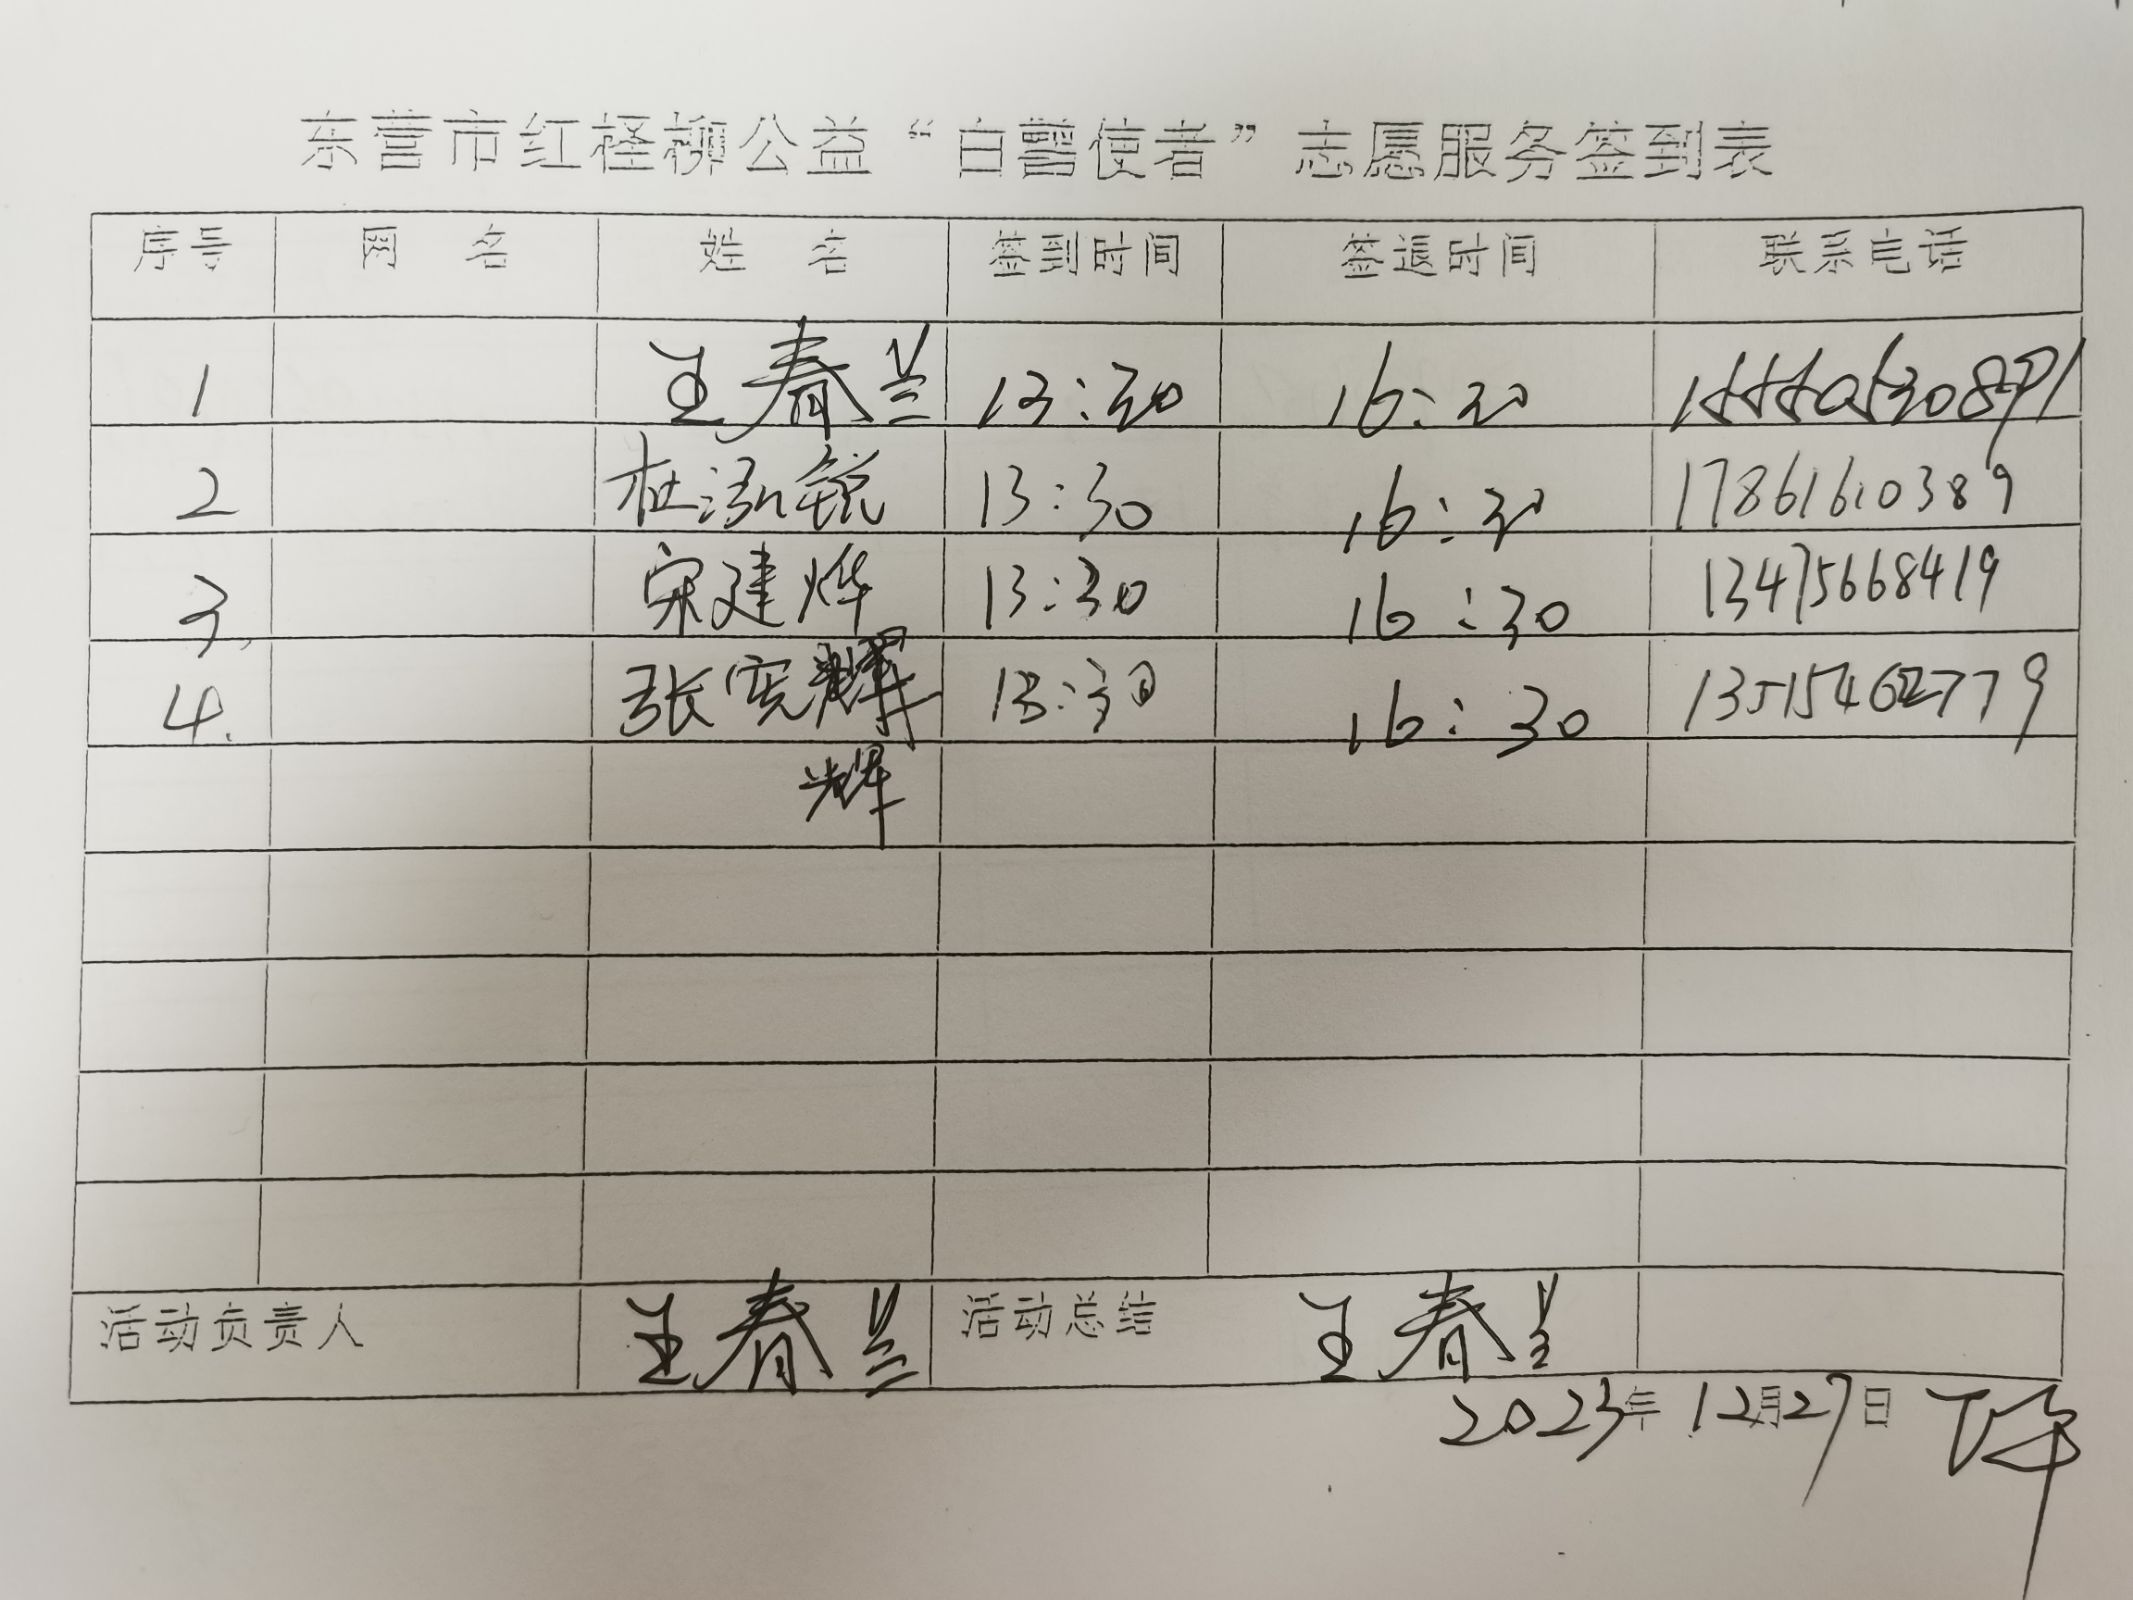 东营市红柽柳公益“白鹭使者”志愿服务签到表
序号 网名 姓名 签到时间 签退时间 联系电话
1 王春兰 13:30 16:30
2 杜泓锐 13:30 16:30 17861610389
3. 宋建烨 13:30 16:30 13475668419
4. 张宪辉 13:30 16:30
辉
活动负责人 王春兰 活动总结 王春兰
2023年12月27日 下午